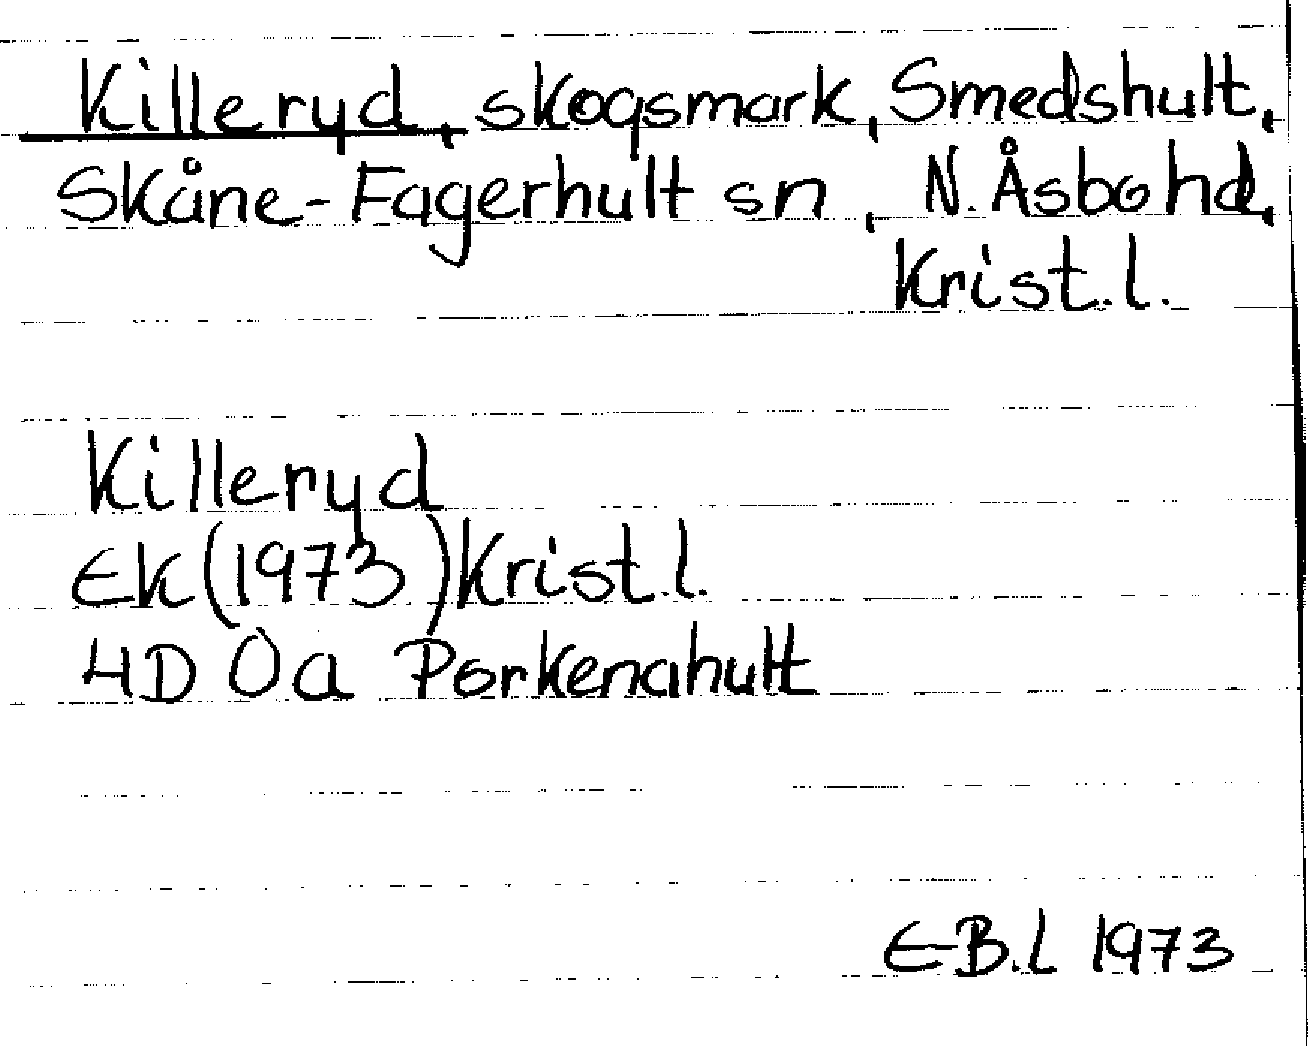 Killeryd, skogsmark, Smedshult,
Skåne-Fagerhult sn, N. Åsbo hd,
Krist. l.
Killeryd
EK (1973) Krist. l.
4D 0a Porkenahult
E-B.L 1973